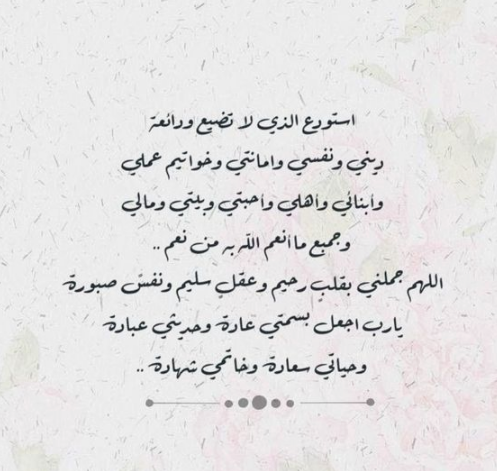 استودع الذي لا تضيع ودائعة
ديني ونفسي وامانتي وخواتيم عملي
وأبنائي وأهلي وأحبتي وبيتي ومالي
وجميع ما أنعم الله به من نعم ..
اللهم جملني بقلب رحيم وعقل سليم ونفس صبورة
يارب اجعل بسمتي عادة وحديثي عبادة
وحياتي سعادة وخاتمي شهادة ..